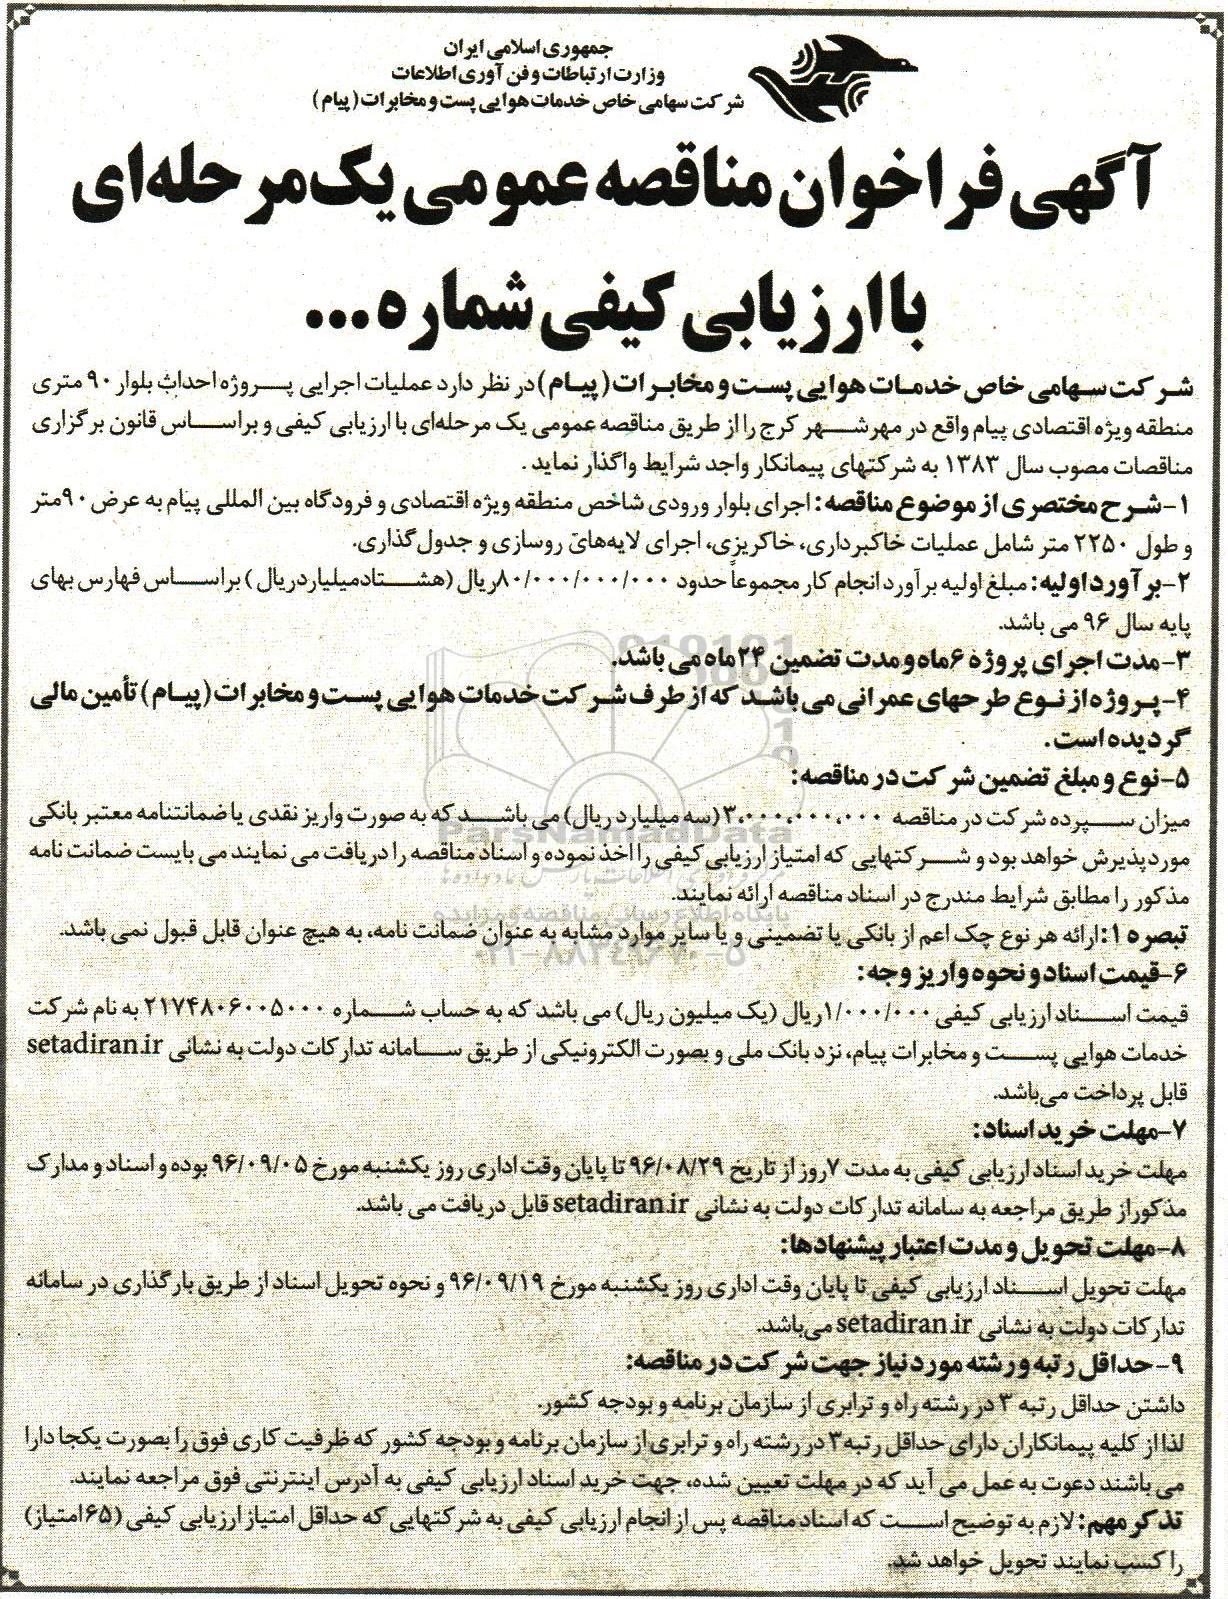 جمهوری اسلامی ایران
وزارت ارتباطات و فن آوری اطلاعات
شرکت سهامی خاص خدمات هوایی پست و مخابرات (پیام)
آگهی فراخوان مناقصه عمومی یک‌مرحله‌ای
با ارزیابی کیفی شماره...
شرکت سهامی خاص خدمات هوایی پست و مخابرات (پیام) در نظر دارد عملیات اجرایی پروژه احداث بلوار ۹۰ متری
منطقه ویژه اقتصادی پیام واقع در مهرشهر کرج را از طریق مناقصه عمومی یک مرحله‌ای با ارزیابی کیفی و براساس قانون برگزاری
مناقصات مصوب سال ۱۳۸۳ به شرکتهای پیمانکار واجد شرایط واگذار نماید.
۱-شرح مختصری از موضوع مناقصه: اجرای بلوار ورودی شاخص منطقه ویژه اقتصادی و فرودگاه بین المللی پیام به عرض ۹۰متر
و طول ۲۲۵۰ متر شامل عملیات خاکبرداری، خاکریزی، اجرای لایه‌های روسازی و جدول‌گذاری.
۲-برآورد اولیه: مبلغ اولیه برآورد انجام کار مجموعاً حدود ۸۰/۰۰۰/۰۰۰/۰۰۰ریال (هشتادمیلیاردریال) براساس فهارس بهای
پایه سال ۹۶ می باشد.
818181
۳-مدت اجرای پروژه ۶ماه و مدت تضمین ۲۴ماه می باشد.
۴-پروژه از نوع طرحهای عمرانی می‌باشد که از طرف شرکت خدمات هوایی پست و مخابرات (پیام) تأمین مالی
گردیده است.
۵-نوع و مبلغ تضمین شرکت در مناقصه:
میزان سپرده شرکت در مناقصه ۳،۰۰۰،۰۰۰،۰۰۰(سه میلیارد ریال) می باشد که به صورت واریز نقدی یا ضمانتنامه معتبر بانکی
ParsNamadData
مورد پذیرش خواهد بود و شرکتهایی که امتیاز ارزیابی کیفی را اخذ نموده و اسناد مناقصه را دریافت می نمایند می بایست ضمانت نامه
مذکور را مطابق شرایط مندرج در اسناد مناقصه ارائه نمایند.
پایگاه اطلاع رسانی مناقصه و مزایده
تبصره ۱: ارائه هر نوع چک اعم از بانکی یا تضمینی و یا سایر موارد مشابه به عنوان ضمانت نامه، به هیچ عنوان قابل قبول نمی باشد.
۰۲۱-۸۸۳۴۹۶۷۰-۵
۶-قیمت اسناد و نحوه واریز وجه:
قیمت اسناد ارزیابی کیفی ۱/۰۰۰/۰۰۰ریال (یک میلیون ریال) می باشد که به حساب شماره ۲۱۷۴۸۰۶۰۰۵۰۰۰ به نام شرکت
خدمات هوایی پست و مخابرات پیام، نزد بانک ملی و بصورت الکترونیکی از طریق سامانه تدارکات دولت به نشانی setadiran.ir
قابل پرداخت می‌باشد.
۷-مهلت خرید اسناد:
مهلت خرید اسناد ارزیابی کیفی به مدت ۷روز از تاریخ ۹۶/۰۸/۲۹ تا پایان وقت اداری روز یکشنبه مورخ ۹۶/۰۹/۰۵ بوده و اسناد و مدارک
مذکور از طریق مراجعه به سامانه تدارکات دولت به نشانی setadiran.ir قابل دریافت می باشد.
۸-مهلت تحویل و مدت اعتبار پیشنهادها:
مهلت تحویل اسناد ارزیابی کیفی تا پایان وقت اداری روز یکشنبه مورخ ۹۶/۰۹/۱۹ و نحوه تحویل اسناد از طریق بارگذاری در سامانه
تدارکات دولت به نشانی setadiran.ir می‌باشد.
۹-حداقل رتبه و رشته مورد نیاز جهت شرکت در مناقصه:
داشتن حداقل رتبه ۳ در رشته راه و ترابری از سازمان برنامه و بودجه کشور.
لذا از کلیه پیمانکاران دارای حداقل رتبه۳ در رشته راه و ترابری از سازمان برنامه و بودجه کشور که ظرفیت کاری فوق را بصورت یکجا دارا
می باشند دعوت به عمل می آید که در مهلت تعیین شده، جهت خرید اسناد ارزیابی کیفی به آدرس اینترنتی فوق مراجعه نمایند.
تذکر مهم: لازم به توضیح است که اسناد مناقصه پس از انجام ارزیابی کیفی به شرکتهایی که حداقل امتیاز ارزیابی کیفی (۶۵امتیاز)
را کسب نمایند تحویل خواهد شد.